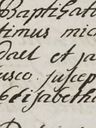 Baptizat
timus mic
Dael et ja
usco. suscep
Elisabetha